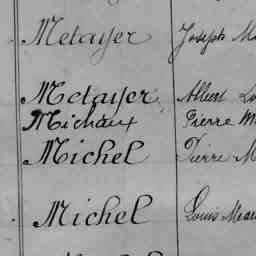 Metayer Joseph
Metayer Albert
Michaux Pierre
Michel Pierre
Michel Louis